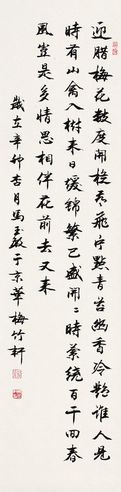 迎腊梅花数度开梭飞宁点青苔幽香冷艳谁人见
时有山禽入树来日缓锦繁乙盛开二时万绕百千回春
风岂是多情思相伴花前去又来
岁在辛卯杏月马玉敏于京华梅竹轩